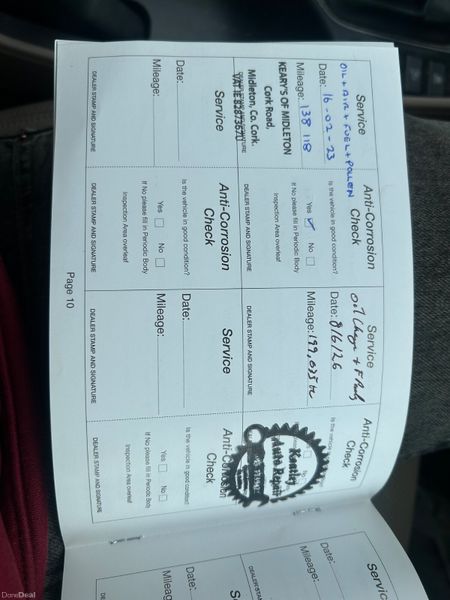 Service
OIL + AIR + FUEL + POLLEN
Date: 16-02-23
Mileage: 138 118
KEARY'S OF MIDLETON
Cork Road,
Midleton, Co. Cork.
VAT IE 8287367U
Anti-Corrosion
Check
Is the vehicle in good condition?
Yes ✓ No
If No please fill in Periodic Body
Inspection Area overleaf
DEALER STAMP AND SIGNATURE
Service
Oil Change + F
Date: 8/6/26
Mileage:
DEALER STAMP AND SIGNATURE
Anti-Corrosion
Check
Is the
No
Auto Repair
Service
Date:
Mileage:
DEALER STAMP AND SIGNATURE
Anti-Corrosion
Check
Is the vehicle in good condition?
Yes No
If No please fill in Periodic Body
Inspection Area overleaf
DEALER STAMP AND SIGNATURE
Service
Date:
Mileage:
DEALER STAMP AND SIGNATURE
Anti-Corrosion
Check
Is the vehicle in good condition?
Yes No
If No please fill in Periodic Body
Inspection Area overleaf
DEALER STAMP AND SIGNATURE
Page 10
Servic
Date:
Mileage:
DEALER
S
Date:
Mileag
DoneDeal